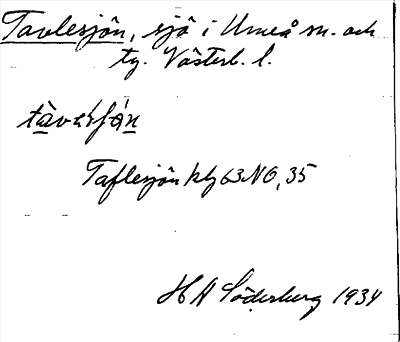 Tavlesjön, sjö i Umeå sn. och
tg. Västerb. l.
Taflesjön kbl 63 NO, 35
H A Söderberg 1934